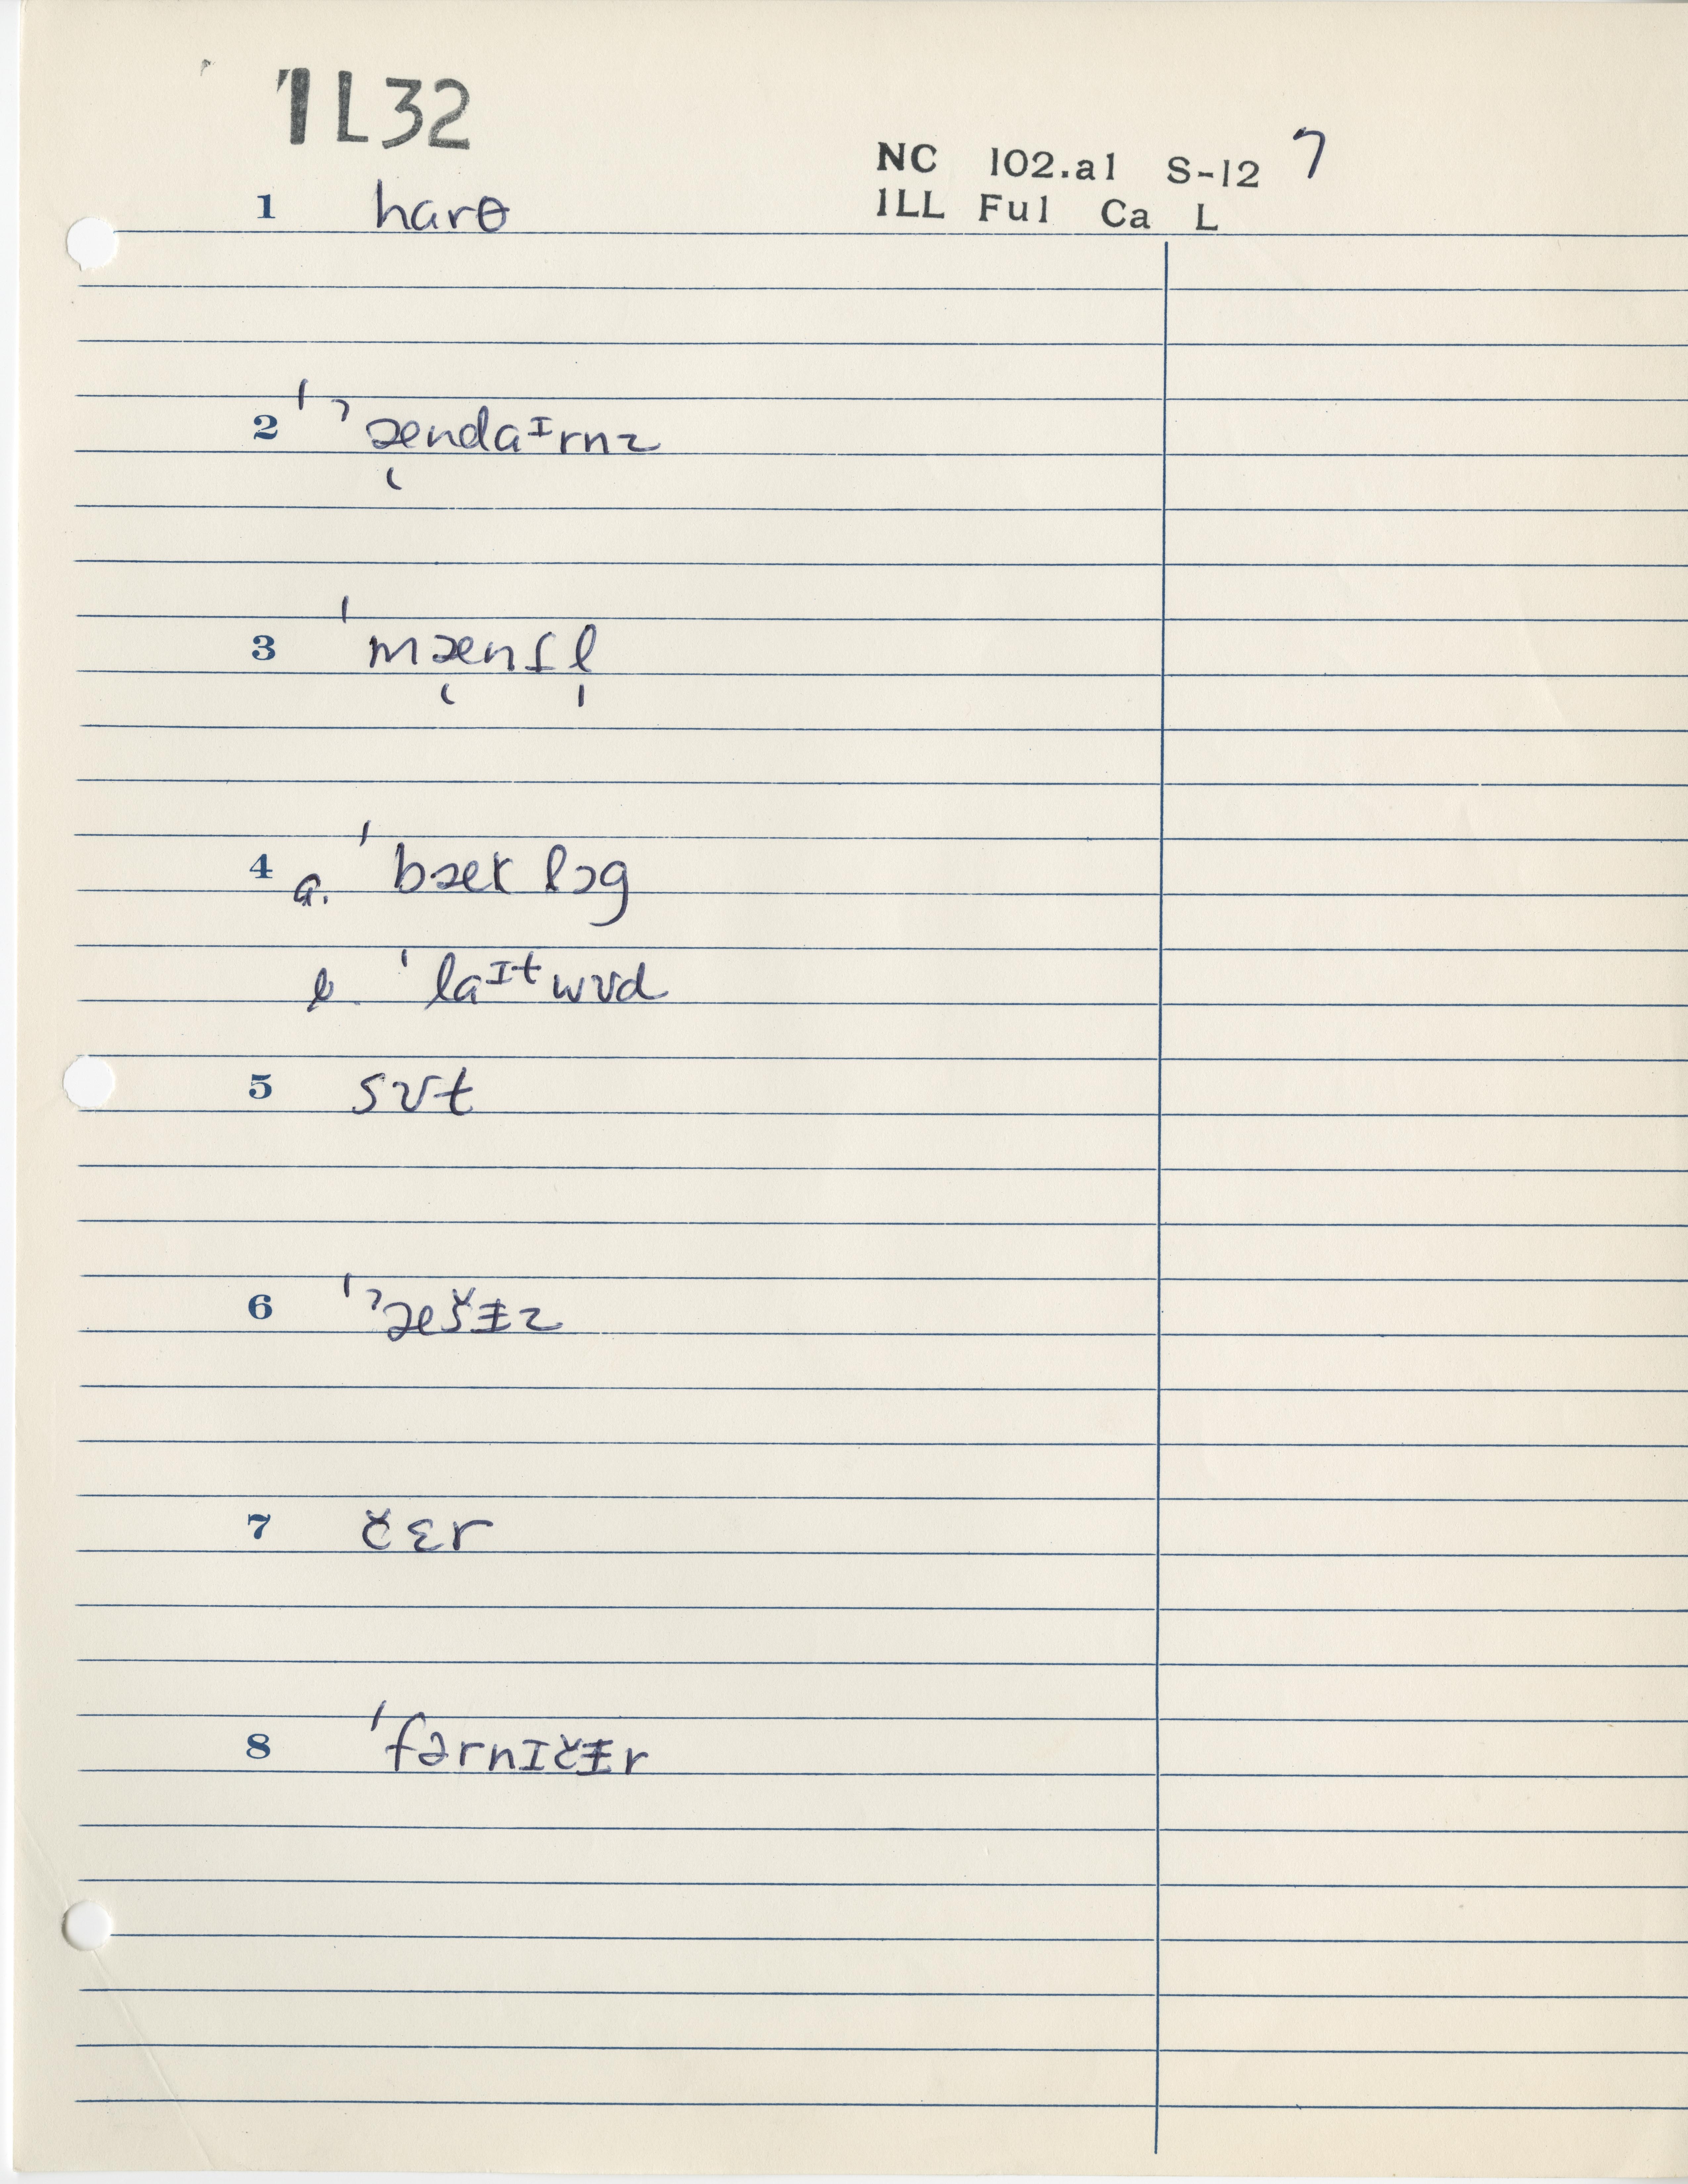 1L32
NC 102.a1 S-12 7
ILL Ful Ca L
1 harθ
2 ˈˀæ̜ndaᶦrnz
3 ˈmæ̜nsl̩
4 a. ˈbæk lɔg
b. ˈlaᶦᵗwʊd
5 sʊt
6 ˈˀæšɨz
7 čɛr
8 ˈfərnɪčɨr